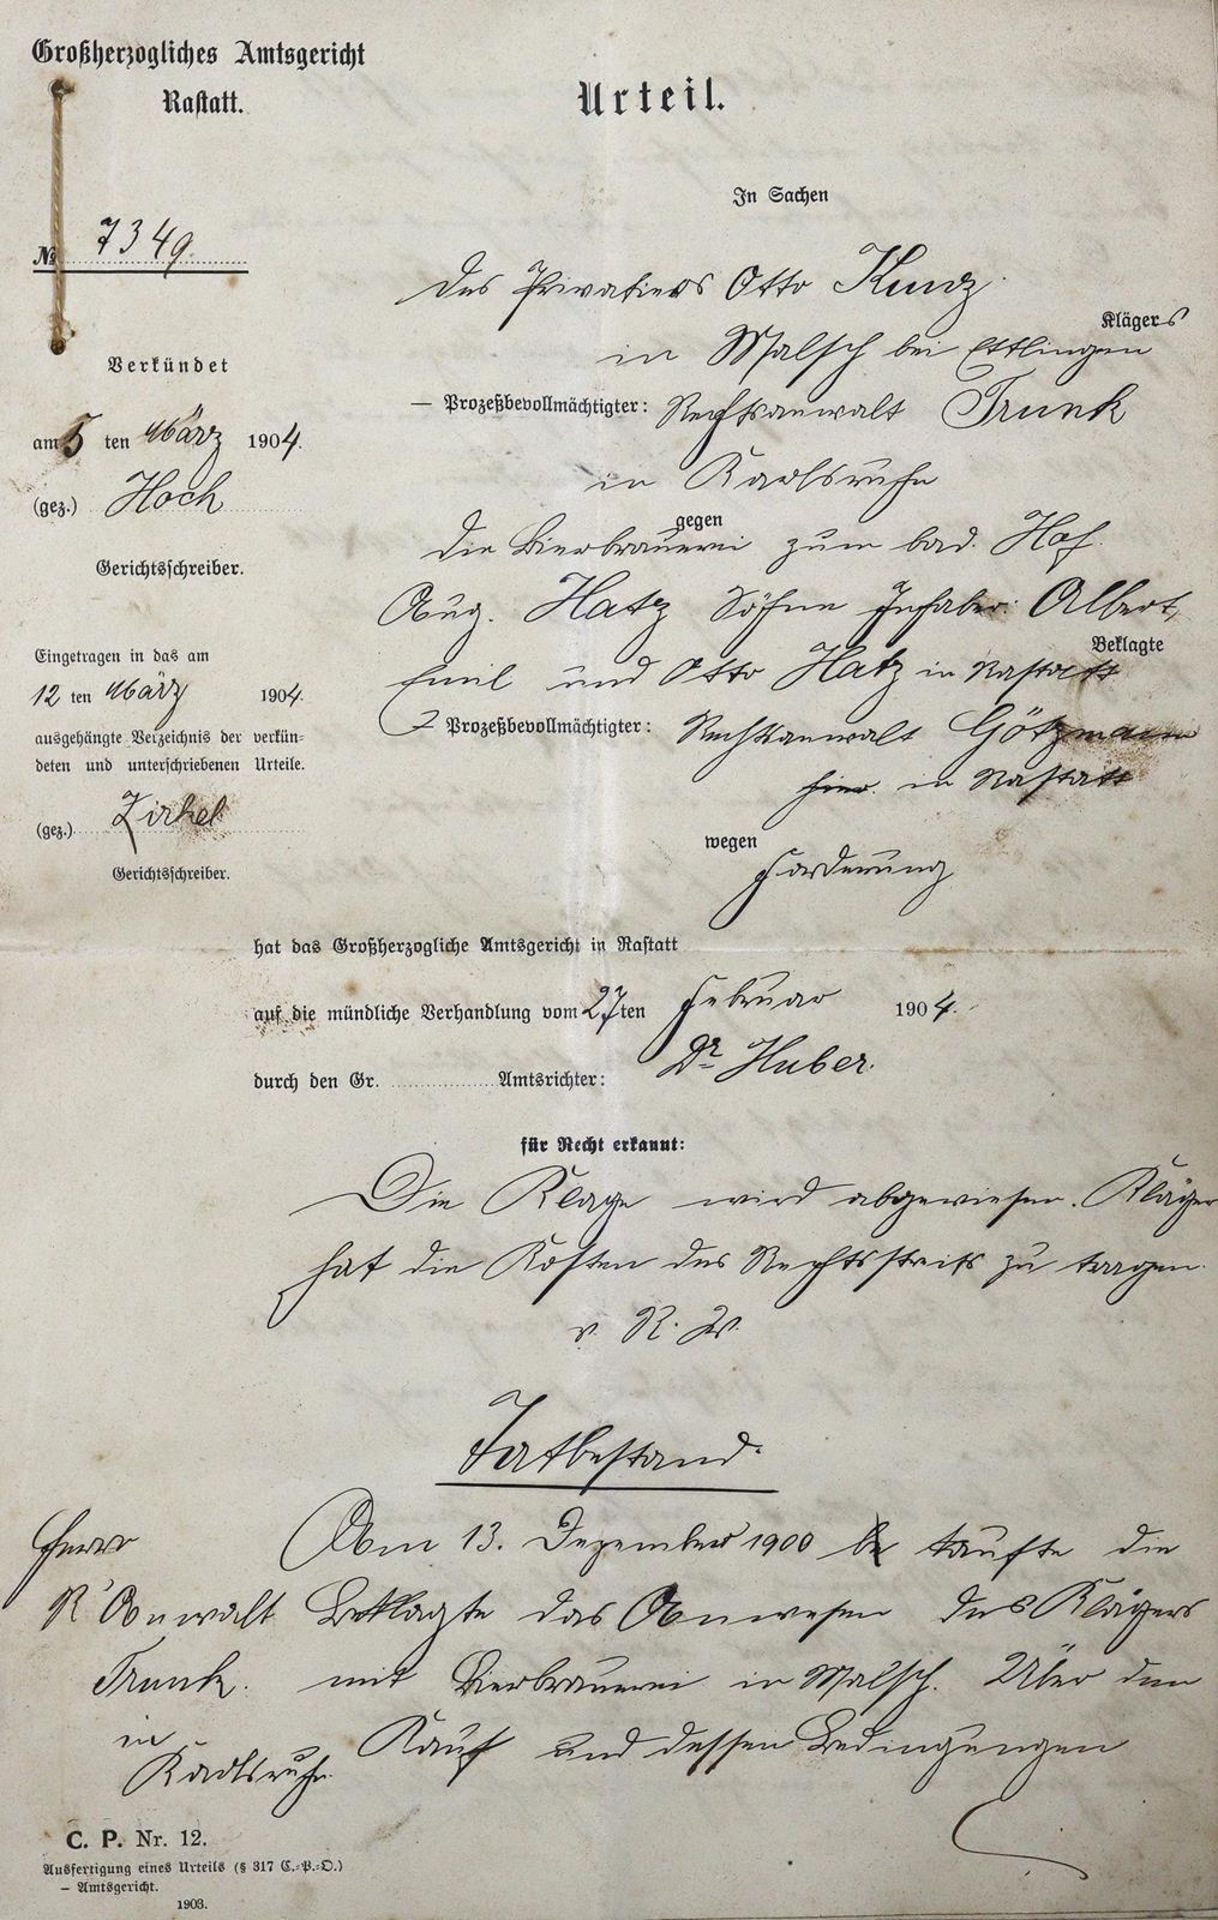 Großherzogliches Amtsgericht
Rastatt.
Urteil.
In Sachen
№ 7349
Verkündet
am 5 ten März 1904.
(gez.) Hoch
Gerichtsschreiber.
Eingetragen in das am
12 ten März 1904.
ausgehängte Verzeichnis der verkün-
deten und unterschriebenen Urteile.
(gez.) Zirkel
Gerichtsschreiber.
des Privatiers Otto Kunz
Klägers
in Malsch bei Ettlingen
— Prozeßbevollmächtigter: Rechtsanwalt Trunk
in Karlsruhe
gegen
die Bierbrauerei zum bad. Hof
Aug. Hatz Söhne Inhaber: Albert,
Beklagte
Emil und Otto Hatz in Rastatt
Prozeßbevollmächtigter: Rechtsanwalt Götzmann
hier. in Rastatt
wegen
Forderung
hat das Großherzogliche Amtsgericht in Rastatt
auf die mündliche Verhandlung vom 27ten Februar 1904.
durch den Gr. Amtsrichter: Dr Huber.
für Recht erkannt:
Die Klage wird abgewiesen. Kläger
hat die Kosten des Rechtsstreits zu tragen.
v. R. W.
Tatbestand.
Am 13. Dezember 1900 kaufte die
Beklagte das Anwesen des Klägers
mit Bierbrauerei in Malsch. Über den
Kauf und dessen Bedingungen
Herrn
R'Anwalt
Trunk.
in
Karlsruhe.
C. P. Nr. 12.
Ausfertigung eines Urteils (§ 317 C.-P.-O.)
– Amtsgericht.
1903.